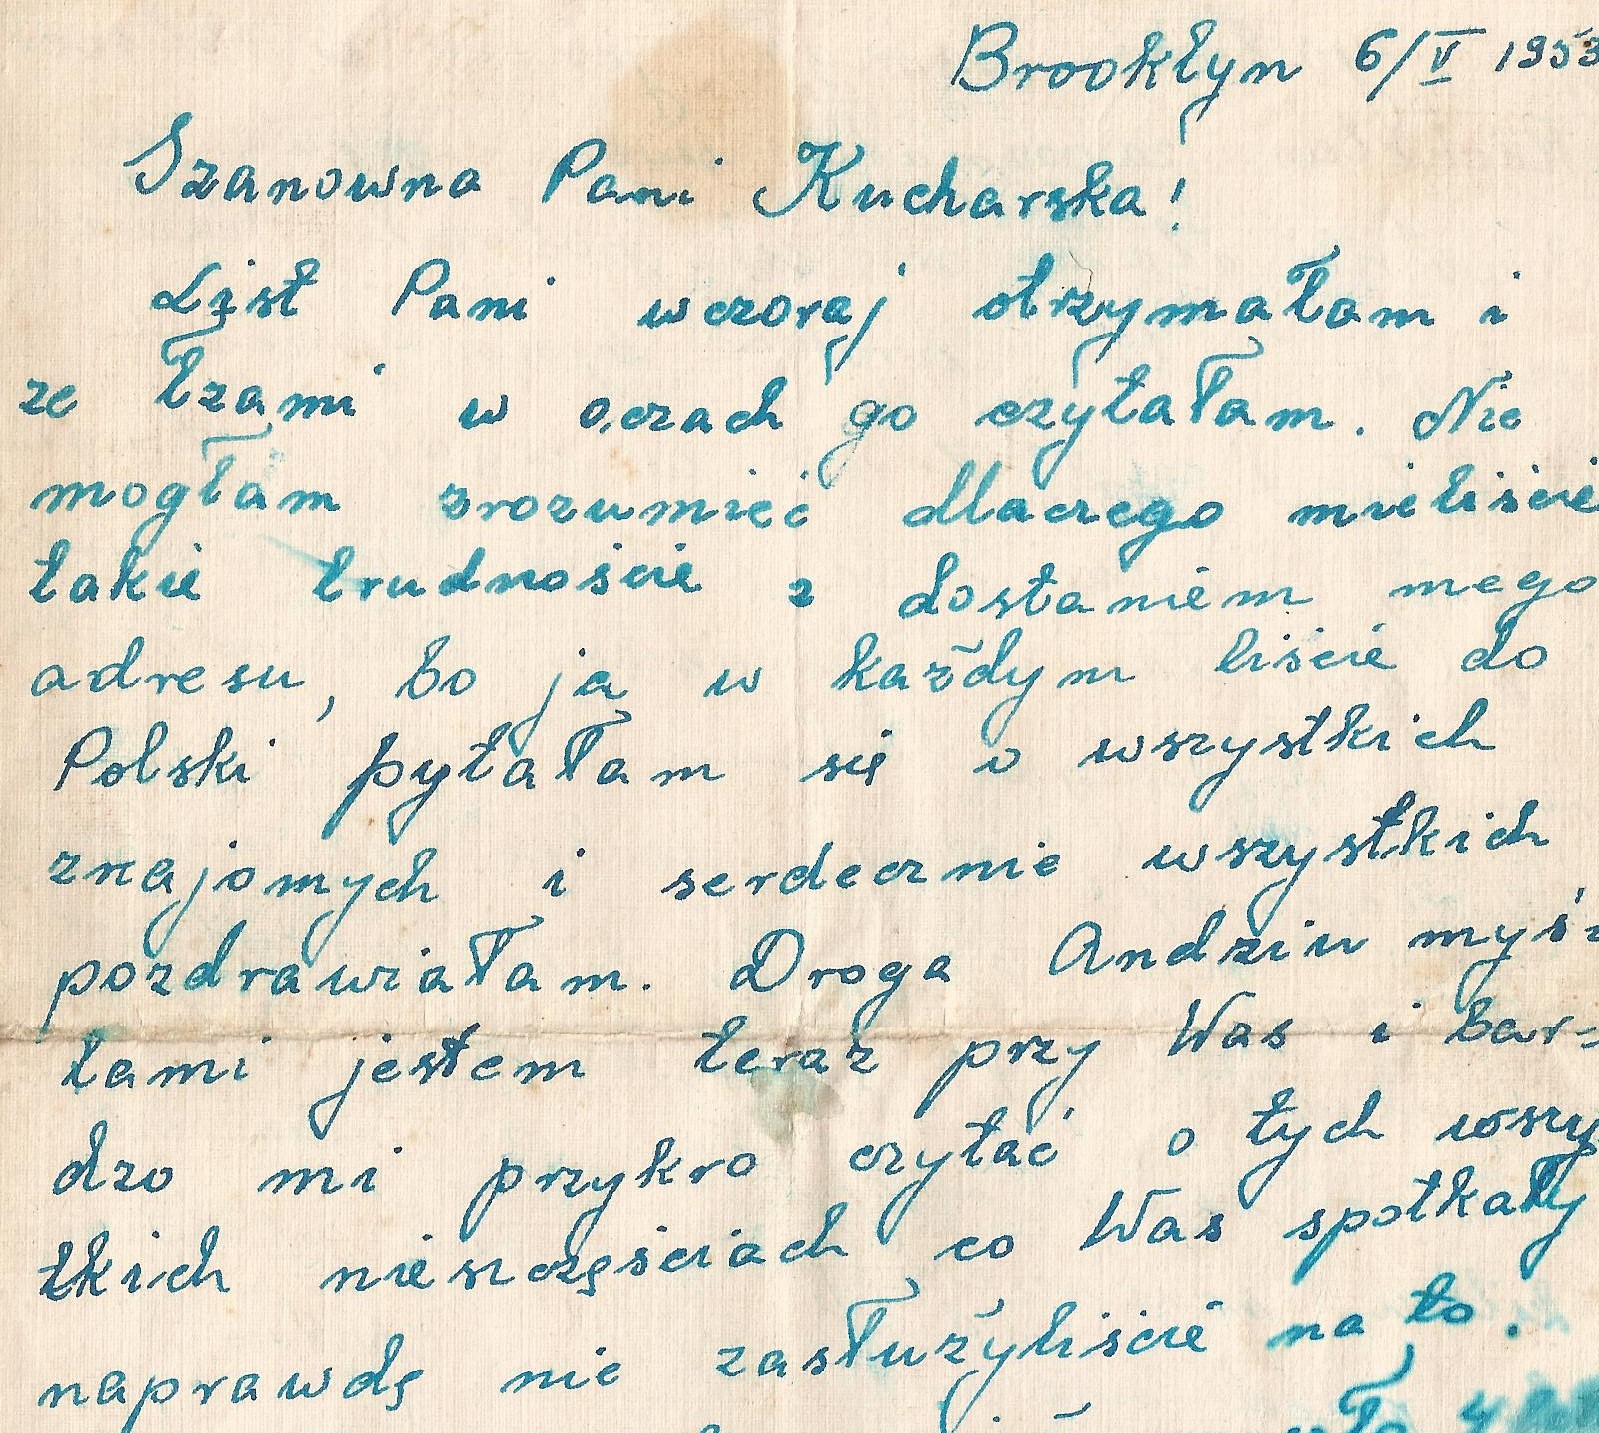 Brookłyn 6/V 1953
Szanowna Pani Kucharska!
List Pani wczoraj otrzymałam i
ze łzami w oczach go czytałam. Nie
mogłam zrozumieć dlaczego mieliście
takie trudnoście z dostaniem mego
adresu, bo ja w każdym liście do
Polski pytałam się o wszystkich
znajomych i serdecznie wszystkich
pozdrawiałam. Droga Andziu myś-
lami jestem teraz przy Was i bar-
dzo mi przykro czytać o tych wszy
tkich nieszczęściach co Was spotkały
naprawdę nie zasłużyliście na to.